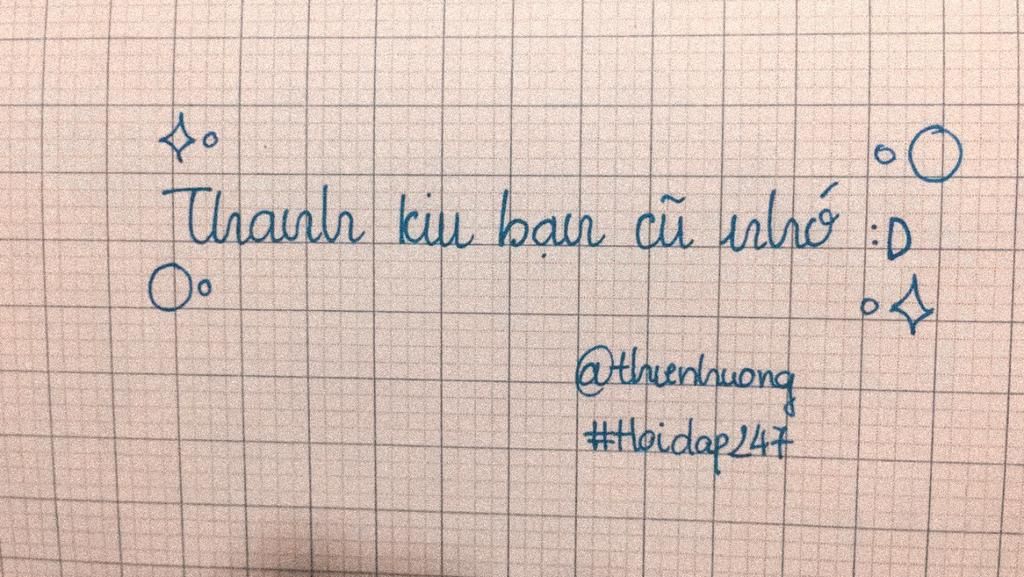 Thanh kiu bạn cũ nhớ :D
@thienhuong
#Hoidap247